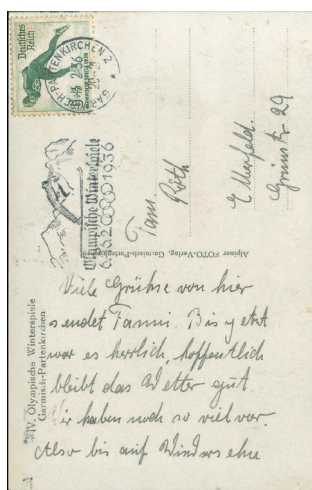 Deutsches Reich
GARMISCH-PARTENKIRCHEN 2
2.36
Olympische Winterspiele
6.-16.2. 1936
Fam.
Röth
Elberfeld.
Grünstr. 29
Alpiner FOTO-Verlag, Garmisch-Partenkirchen
IV. Olympische Winterspiele
Garmisch-Partenkirchen
Viele Grüße von hier
sendet Fanni. Bis jetzt
war es herrlich, hoffentlich
bleibt das Wetter gut
Wir haben noch so viel vor.
Also bis auf Wiedersehn